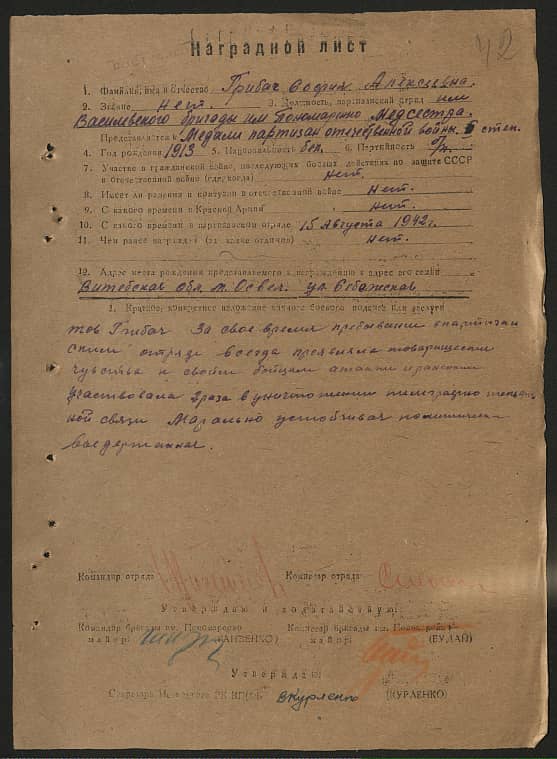 42
Наградной лист
1. Фамилия, имя и отчество Грибач София Алексеевна.
2. Звание нет. 3. Должность, партизанский отряд им
Васильевского бригады им Пономаренко Медсестра.
Представляется к Медали партизан отечественной войны II степ.
4. Год рождения 1913 5. Национальность бел. 6. Партийность б/п.
7. Участие в гражданской войне, последующих боевых действиях по защите СССР
и отечественной войне (где, когда) нет.
8. Имеет ли ранения и контузии в отечественной войне Нет.
9. С какого времени в Красной Армии нет.
10. С какого времени в партизанском отряде 15 Августа 1942 г.
11. Чем ранее награжден (за какие отличия) нет.
12. Адрес места рождения представляемого к награждению и адрес его семьи
Витебская обл. м. Освея. ул. Себежская
1. Краткое, конкретное изложение личного боевого подвига или заслуги
тов Грибач За свое время пребывания в партизан
ском отряде всегда проявляла товарищеские
чувства к своим бойцам
участвовала 2 раза в уничтожении телеграфно телефон
ной связи Марально устойчивая политически
выдержанная.
Командир отряда Комиссар отряда
Утверждаю и ходатайствую:
Командир бригады им. Пономаренко Комиссар бригады им. Пономаренко
майор (ГАНЗЕНКО) майор (БУДАЙ)
Утверждаю:
Секретарь РК КП(б)Б ВКурленко (КУРЛЕНКО)